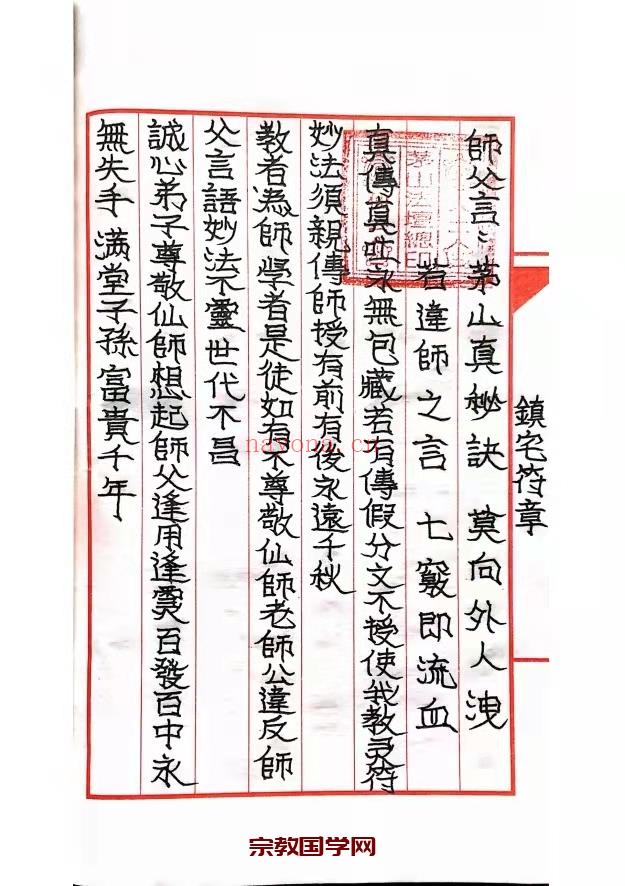 鎮宅符章
師父言：茅山真秘訣 莫向外人洩
若違師之言 七竅即流血
真傳真吐永無包藏若有傳假分文不授使我教灵符
妙法須親傳師授有前有後永遠千秋
教者為師學者是徒如有不尊敬仙師老師公違反師
父言語妙法不靈世代不昌
誠心弟子尊敬仙師想起師父逢用逢灵百發百中永
無失手滿堂子孫富貴千年
茅山法壇總印
nayona.cn
宗教国学网